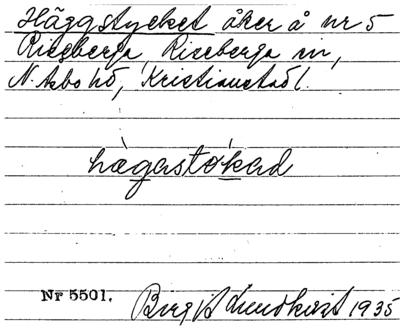 Häggstycket åker å nr 5
Riseberga, Riseberga sn,
N. Åsbo hd, Kristianstads l.
hàgastokad
Nr 5501. Birgit Lundkvist 1935